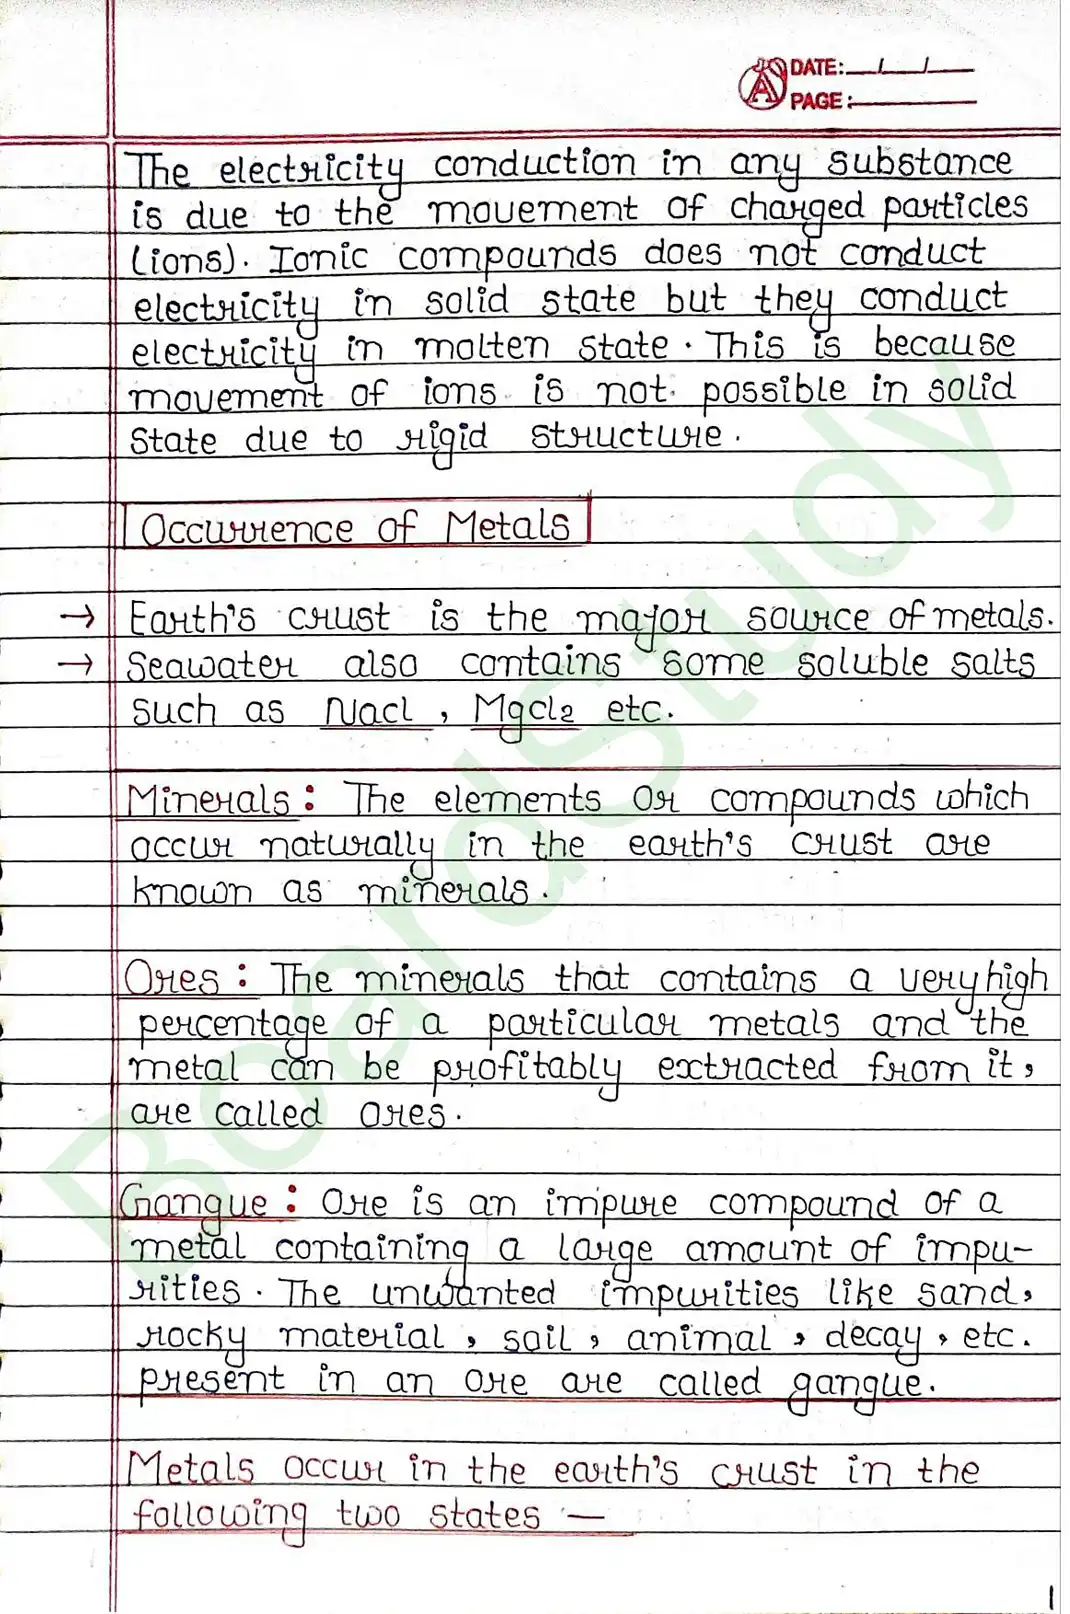 DATE: / /
PAGE:
The electricity conduction in any substance
is due to the movement of charged particles
(ions). Ionic compounds does not conduct
electricity in solid state but they conduct
electricity in molten state. This is because
movement of ions is not possible in solid
State due to rigid structure.
Occurrence of Metals
→ Earth's crust is the major source of metals.
→ Seawater also contains some soluble salts
such as Nacl, Mgcl2 etc.
Minerals: The elements or compounds which
occur naturally in the earth's crust are
known as minerals.
Ores: The minerals that contains a very high
percentage of a particular metals and the
metal can be profitably extracted from it,
are called ores.
Gangue: Ore is an impure compound of a
metal containing a large amount of impu-
rities. The unwanted impurities like sand,
rocky material, soil, animal, decay, etc.
present in an ore are called gangue.
Metals occur in the earth's crust in the
following two states —
BoardStudy